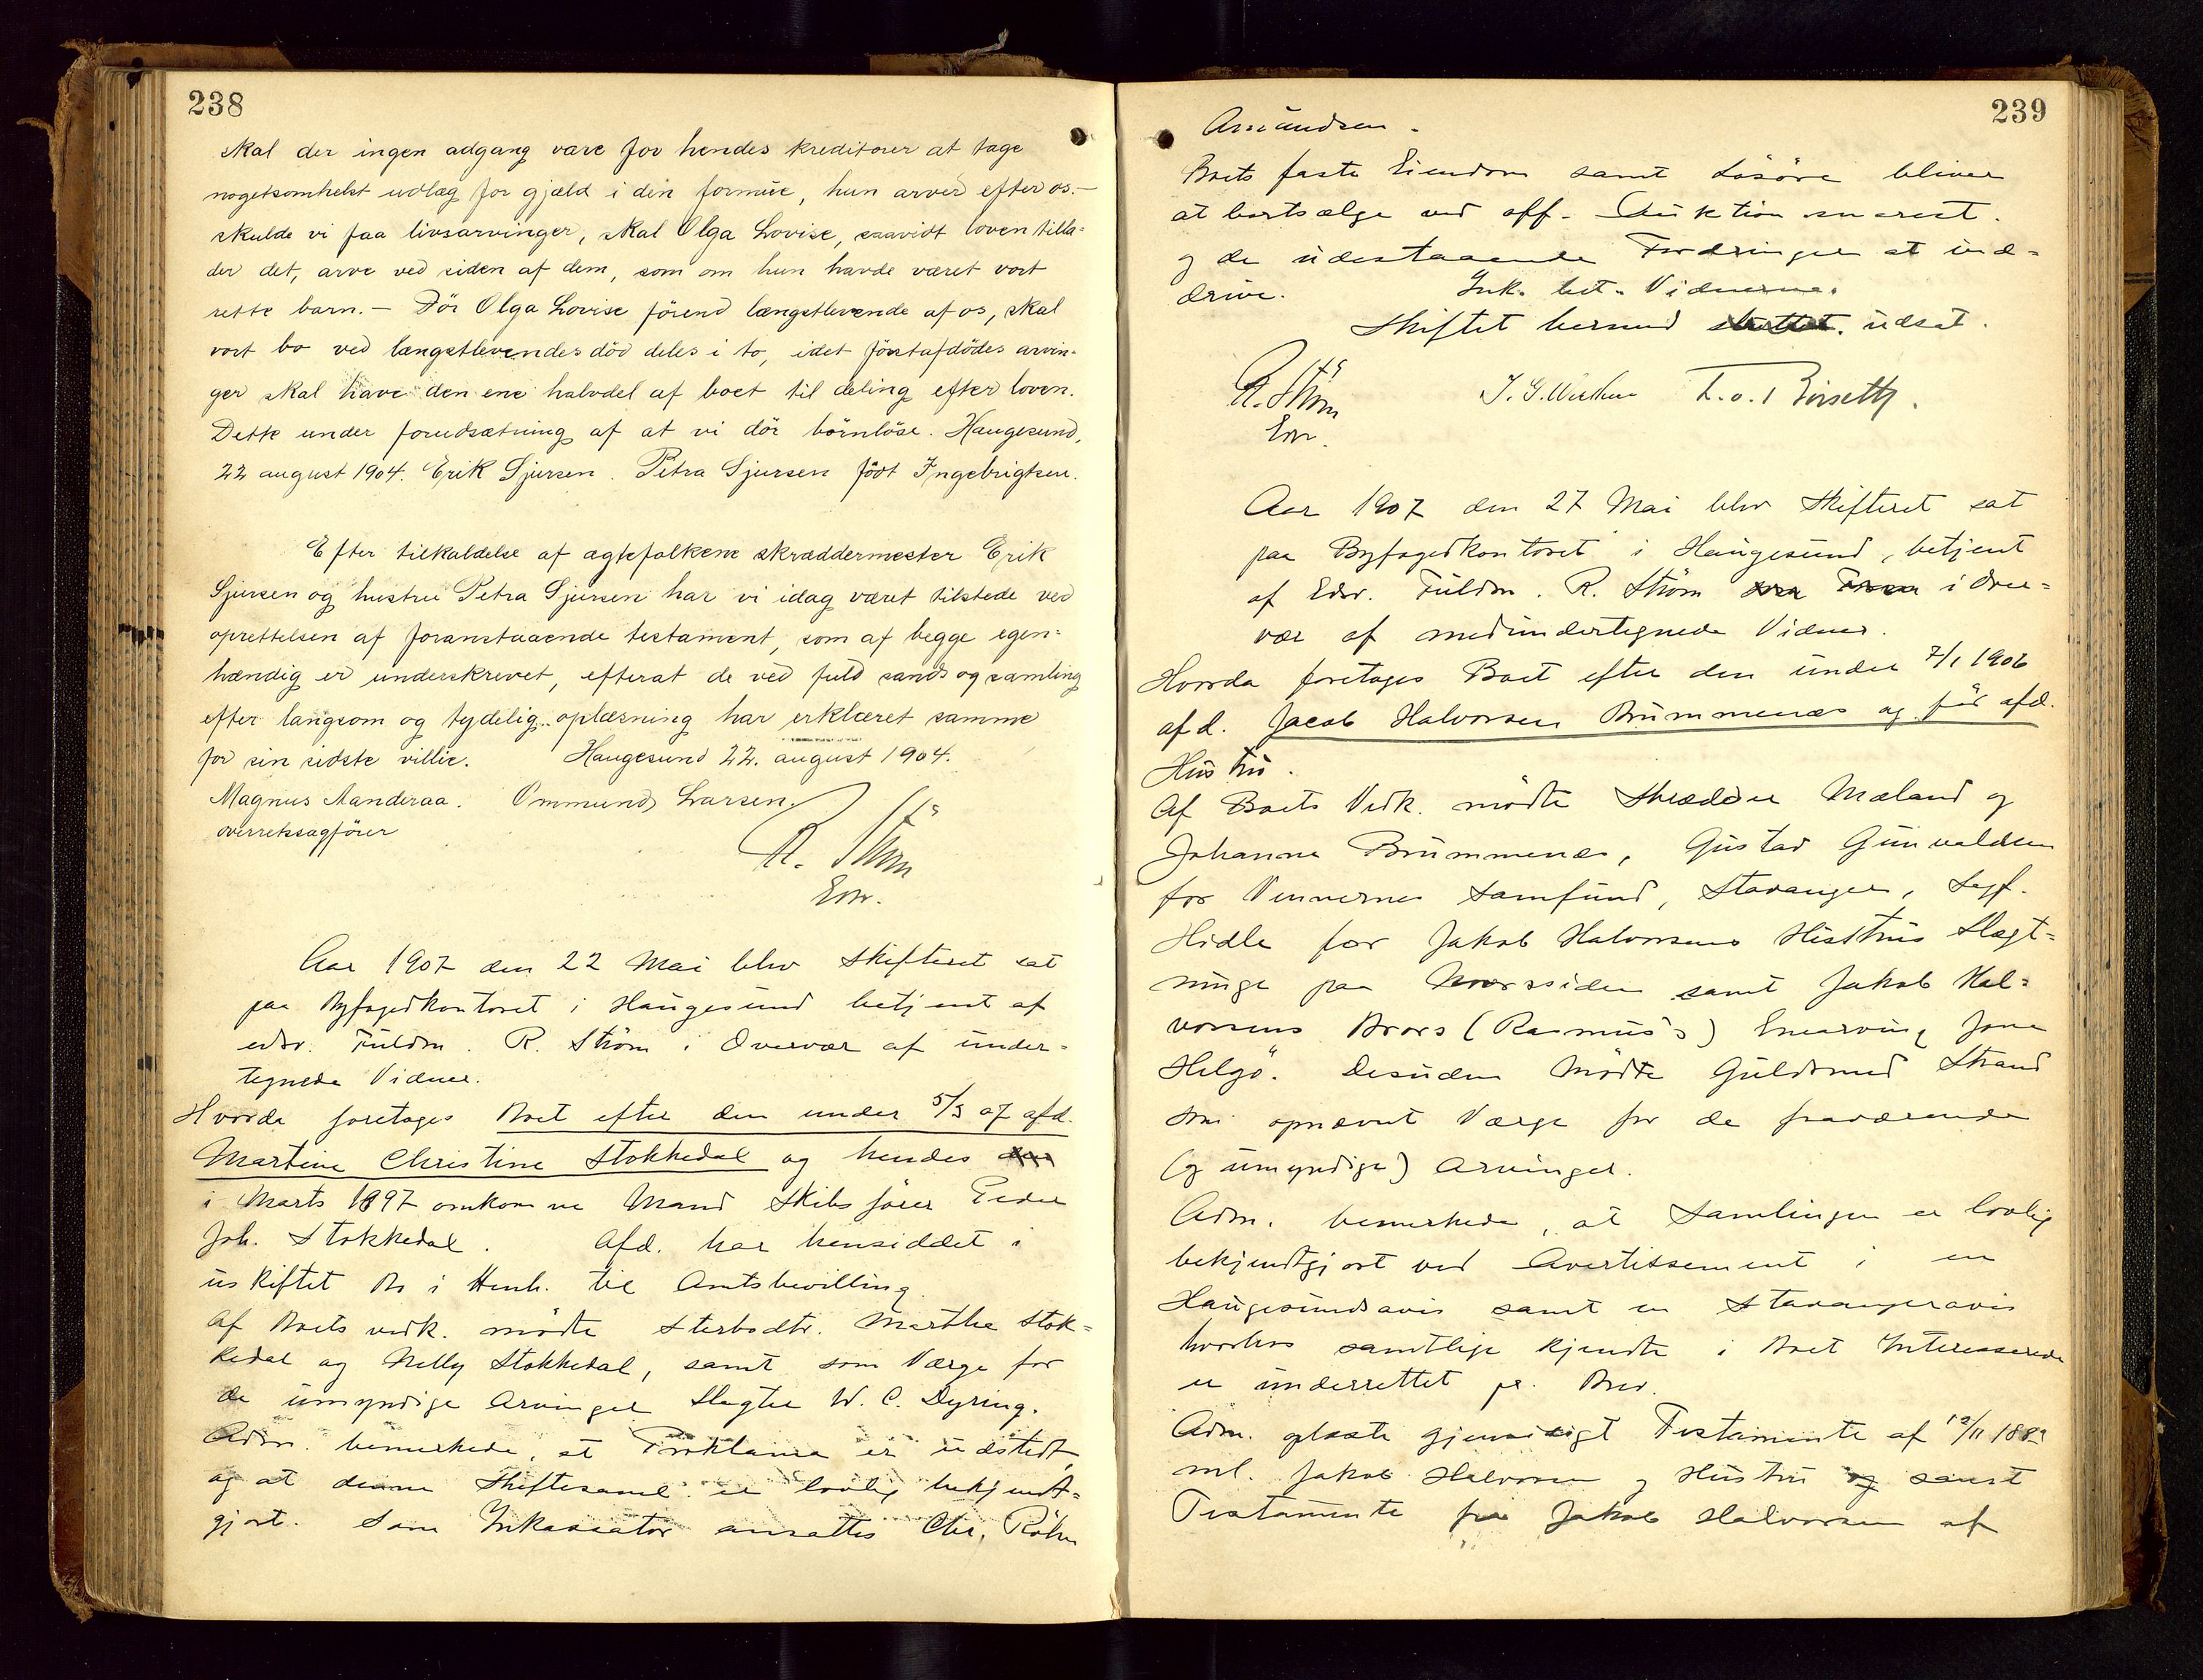 238
skal der ingen adgang være for hendes kreditorer at tage
nogetsomhelst udlæg for gjæld i den formue, hun arver efter os.-
skulde vi faa livsarvinger, skal Olga Lovise, saavidt loven tilla=
der det, arve ved siden af dem, som om hun havde været vort
rette barn. - Dör Olga Lovise förend længstlevende af os, skal
vort bo ved længstlevendes död deles i to, idet förstafdödes arvin-
ger skal have den ene halvdel af boet til deling efter loven.
Dette under forudsætning af at vi dör börnlöse. Haugesund,
22 august 1904. Erik Sjursen. Petra Sjursen född Ingebrigtsen.
Efter tilkaldelse af ægtefolkene skræddermester Erik
Sjursen og hustru Petra Sjursen har vi idag været tilstede ved
oprettelsen af foranstaaende testament, som af begge egen=
hændig er underskrevet, efterat de ved fuld sands og samling
efter langsom og tydelig oplæsning har erklæret samme
for sin sidste villie. Haugesund 22. august 1904.
Magnus Aanderaa. Ommund Larsen.
overretssagförer
R. Ström
Edsv.
Aar 1907 den 22 Mai blev Skifteret sat
paa Byfogedkontoret i Haugesund betjent af
edsv. Fuldm. R. Ström i Overvær af under=
tegnede Vidner.
Hvorda foretages Boet efter den under 5/3 07 afd.
Martine Christine Stokkedal og hendes
i Marts 1897 omkomne Mand Skibsförer Peder
Joh. Stokkedal. Afd. har hensiddet i
uskiftet Bo i Henh. til Amtsbevilling
Af Boets vedk. mödte Sterbodtr. Marthe Stok=
kedal og Nelly Stokkedal, samt som Værge for
de umyndige Arvinger Slagter W. C. Dyring.
Adm. bemerkede, at Proklama er udstedt
og at denne Skiftesaml. er lovlig bekjendt=
gjort. Som Inkassator ansattes Chr. Röhr
239
Amundsen.
Boets faste Eiendom samt Lösöre bliver
at bortsælge ved off. Auktion snarest.
og de udestaaende Fordringer at ind=
drive. Ink. bet. Vidnerne.
Skiftet hermed sluttet. udsat.
R. Ström
Edsv.
Aar 1907 den 27 Mai blev Skifteret sat
paa Byfogedkontoret i Haugesund, betjent
af Edsv. Fuldm. R. Ström i Over=
vær af medundertegnede Vidner.
Hvorda foretages Boet efter den under 7/1 1906
afd. Jacob Halvorsen Brummenæs og för afd.
Hustru.
Af Boets Vedk. mödte Skrædder Mæland og
Johanna Brummenæs, Gustav Gunvaldsen
for Vennernes Samfund, Stavanger, Sagf.
Hidle for Jakob Halvorsens Hustrus Slægt=
ninge paa Morssiden samt Jakob Hal=
vorsens Brors (Rasmus's) Enearving Jone
Helgö. Desuden Mödte Guldsmed Strand
som opnævnt Værge for de fraværende
(og umyndige) Arvinger.
Adm. bemerkede, at Samlingen er lovlig
bekjendtgjort ved Avertissement i en
Haugesundsavis samt en Stavangeravis
hvorhos samtlige kjendte i Boet Interesserede
er underrettet pr. Brev.
Adm. oplæste gjensidigt Testamente af
ml. Jakob Halvorsen og Hustru og samt
Testamente fra Jakob Halvorsen af